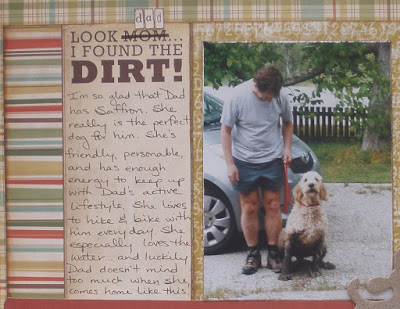 dad
LOOK MOM...
I FOUND THE
DIRT!
I'm so glad that Dad
has Saffron. She
really is the perfect
dog for him. She's
friendly, personable,
and has enough
energy to keep up
with Dad's active
lifestyle. She loves
to hike & bike with
him everyday. She
especially loves the
water.. and luckily
Dad doesn't mind
too much when she
comes home like this.